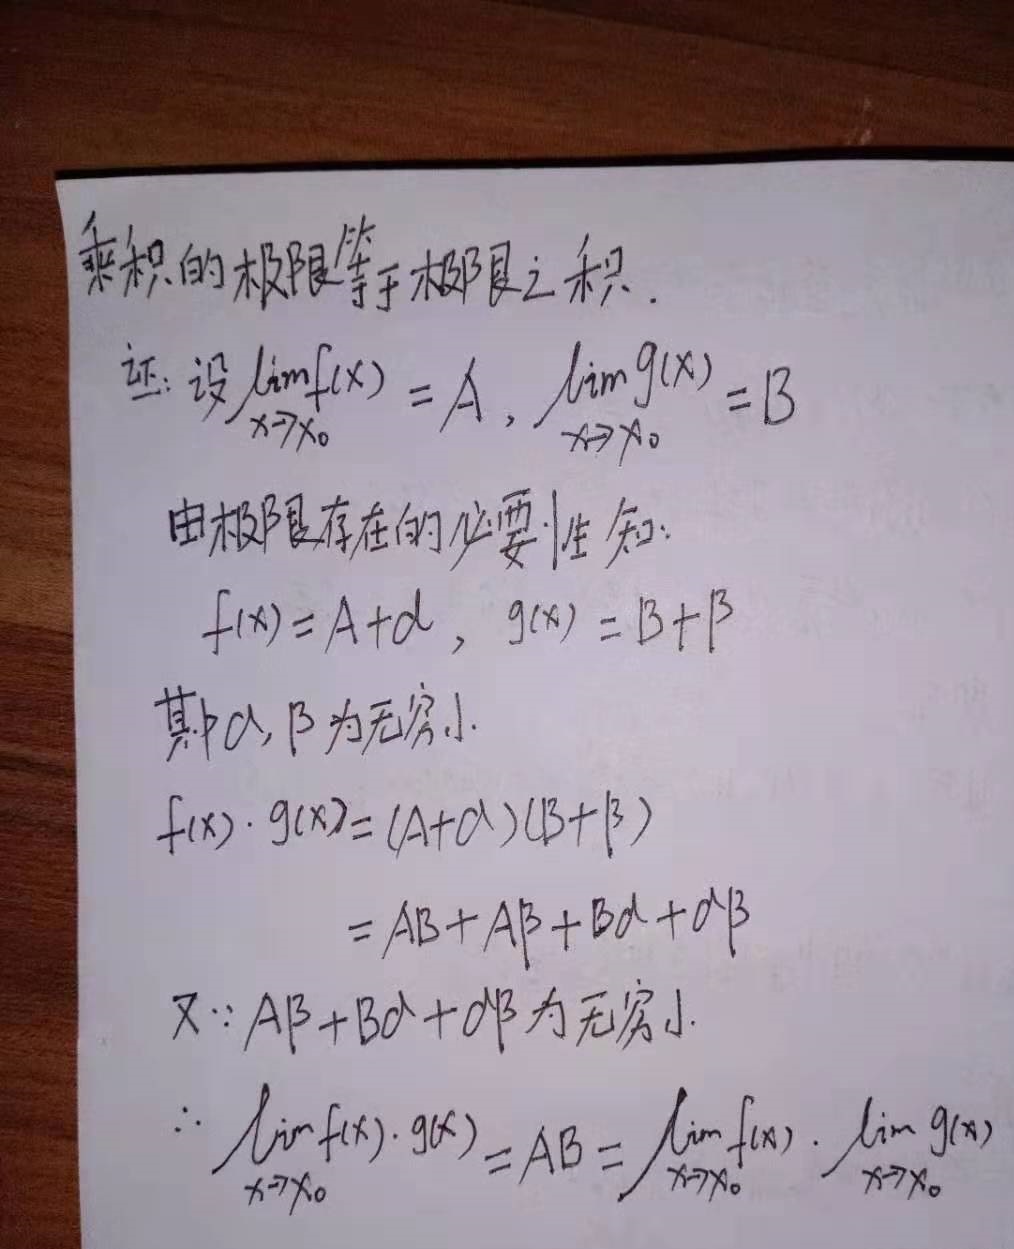 乘积的极限等于极限之积.
证:设 lim f(x) = A, lim g(x) = B
x→x₀ x→x₀
由极限存在的必要性知:
f(x)=A+α, g(x)=B+β
其中α,β为无穷小.
f(x)·g(x)=(A+α)(B+β)
=AB+Aβ+Bα+αβ
又∵Aβ+Bα+αβ为无穷小.
∴ lim f(x)·g(x) = AB = lim f(x) · lim g(x)
x→x₀ x→x₀ x→x₀